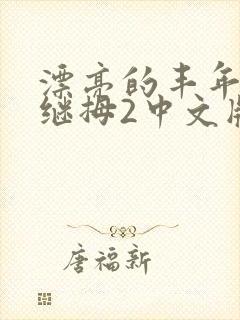 漂亮的丰年
继拇2中文版
唐福新